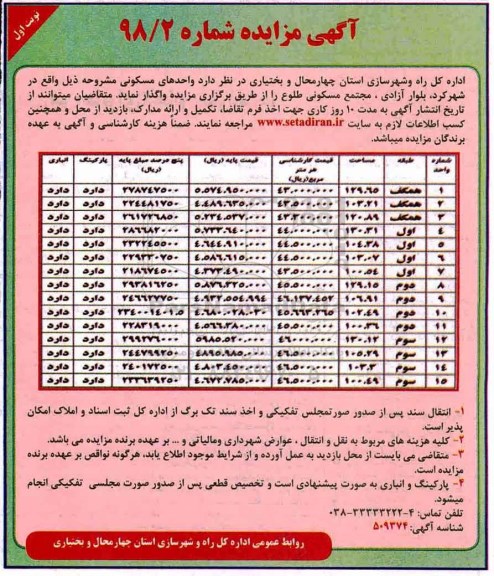 نوبت اول
آگهی مزایده شماره ۹۸/۲
اداره کل راه وشهرسازی استان چهارمحال و بختیاری در نظر دارد واحدهای مسکونی مشروحه ذیل واقع در
شهرکرد، بلوار آزادی ، مجتمع مسکونی طلوع را از طریق برگزاری مزایده واگذار نماید. متقاضیان میتوانند از
تاریخ انتشار آگهی به مدت ۱۰ روز کاری جهت اخذ فرم تقاضا، تکمیل و ارائه مدارک، بازدید از محل و همچنین
کسب اطلاعات لازم به سایت www.setadiran.ir مراجعه نمایند. ضمناً هزینه کارشناسی و آگهی به عهده
برندگان مزایده میباشد.
شماره واحد طبقه مساحت قیمت کارشناسی هر متر مربع(ریال) قیمت پایه (ریال) پنج درصد مبلغ پایه (ریال) پارکینگ انباری
۱ همکف ۱۲۹.۶۵ ۴۳.۰۰۰.۰۰۰ ۵.۵۷۴.۹۵۰.۰۰۰ ۲۷۸۷۴۷۵۰۰ دارد دارد
۲ همکف ۱۰۳.۲۱ ۴۳.۵۰۰.۰۰۰ ۴.۴۸۹.۶۳۵.۰۰۰ ۲۲۴۴۸۱۷۵۰ دارد دارد
۳ همکف ۱۲۰.۸۹ ۴۳.۳۰۰.۰۰۰ ۵.۲۳۴.۵۳۷.۰۰۰ ۲۶۱۷۲۶۸۵۰ دارد دارد
۴ اول ۱۳۰.۳۱ ۴۴.۰۰۰.۰۰۰ ۵.۷۳۳.۶۴۰.۰۰۰ ۲۸۶۶۸۲۰۰۰ دارد دارد
۵ اول ۱۰۴.۳۸ ۴۴.۵۰۰.۰۰۰ ۴.۶۴۴.۹۱۰.۰۰۰ ۲۳۲۲۴۵۵۰۰ دارد دارد
۶ اول ۱۰۳.۰۷ ۴۴.۵۰۰.۰۰۰ ۴.۵۸۶.۶۱۵.۰۰۰ ۲۲۹۳۳۰۷۵۰ دارد دارد
۷ اول ۱۰۰.۵۴ ۴۳.۵۰۰.۰۰۰ ۴.۳۷۳.۴۹۰.۰۰۰ ۲۱۸۶۷۴۵۰۰ دارد دارد
۸ دوم ۱۲۹.۱۵ ۴۵.۵۰۰.۰۰۰ ۵.۸۷۶.۳۲۵.۰۰۰ ۲۹۳۸۱۶۲۵۰ دارد دارد
۹ دوم ۱۰۶.۹۱ ۴۶.۱۳۷.۴۵۲ دارد دارد
۱۰ دوم ۱۰۲.۴۹ دارد دارد
۱۱ دوم ۱۰۰.۳۶ ۴۵.۵۰۰.۰۰۰ ۴.۵۶۶.۳۸۰.۰۰۰ ۲۲۸۳۱۹۰۰۰ دارد دارد
۱۲ سوم ۱۳۰.۱۲ ۴۶.۰۰۰.۰۰۰ ۵۹۸۵.۵۲۰.۰۰۰ ۲۹۹۲۷۶۰۰۰ دارد دارد
۱۳ سوم ۱۰۵.۲۹ ۴۶.۵۰۰.۰۰۰ ۴۸۹۵.۹۸۵.۰۰۰ ۲۴۴۷۹۹۲۵۰ دارد دارد
۱۴ سوم ۱۰۳.۳ ۴۶.۵۰۰.۰۰۰ ۴۸۰۳.۴۵۰.۰۰۰ ۲۴۰۱۷۲۵۰۰ دارد دارد
۱۵ سوم ۱۰۰.۴۹ ۴۶.۵۰۰.۰۰۰ ۴.۶۷۲.۷۸۵.۰۰۰ ۲۳۳۶۳۹۲۵۰ دارد دارد
۱- انتقال سند پس از صدور صورتمجلس تفکیکی و اخذ سند تک برگ از اداره کل ثبت اسناد و املاک امکان
پذیر است.
۲- کلیه هزینه های مربوط به نقل و انتقال ، عوارض شهرداری ومالیاتی و ... بر عهده برنده مزایده می باشد.
۳- متقاضی می بایست از محل بازدید به عمل آورده و از شرایط موجود اطلاع یابد، هرگونه نواقص بر عهده برنده
مزایده است.
۴- پارکینگ و انباری به صورت پیشنهادی است و تخصیص قطعی پس از صدور صورت مجلسی تفکیکی انجام
میشود.
تلفن تماس: ۴-۳۳۳۳۳۲۲۲-۰۳۸
شناسه آگهی: ۵۰۹۳۷۴
روابط عمومی اداره کل راه و شهرسازی استان چهارمحال و بختیاری